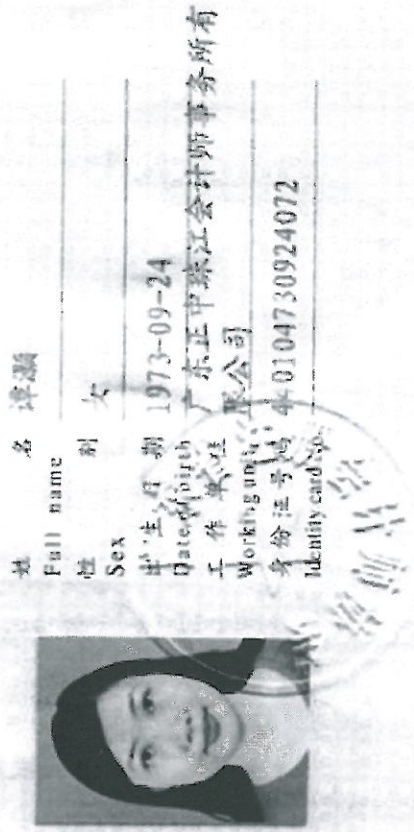 姓 名 谭灏
Full name
性 别 女
Sex
出 生 日 期 1973-09-24
Date of birth
工 作 单 位 广东正中珠江会计师事务所有
限公司
Working unit
身份证号码 440104730924072
Identity card No.